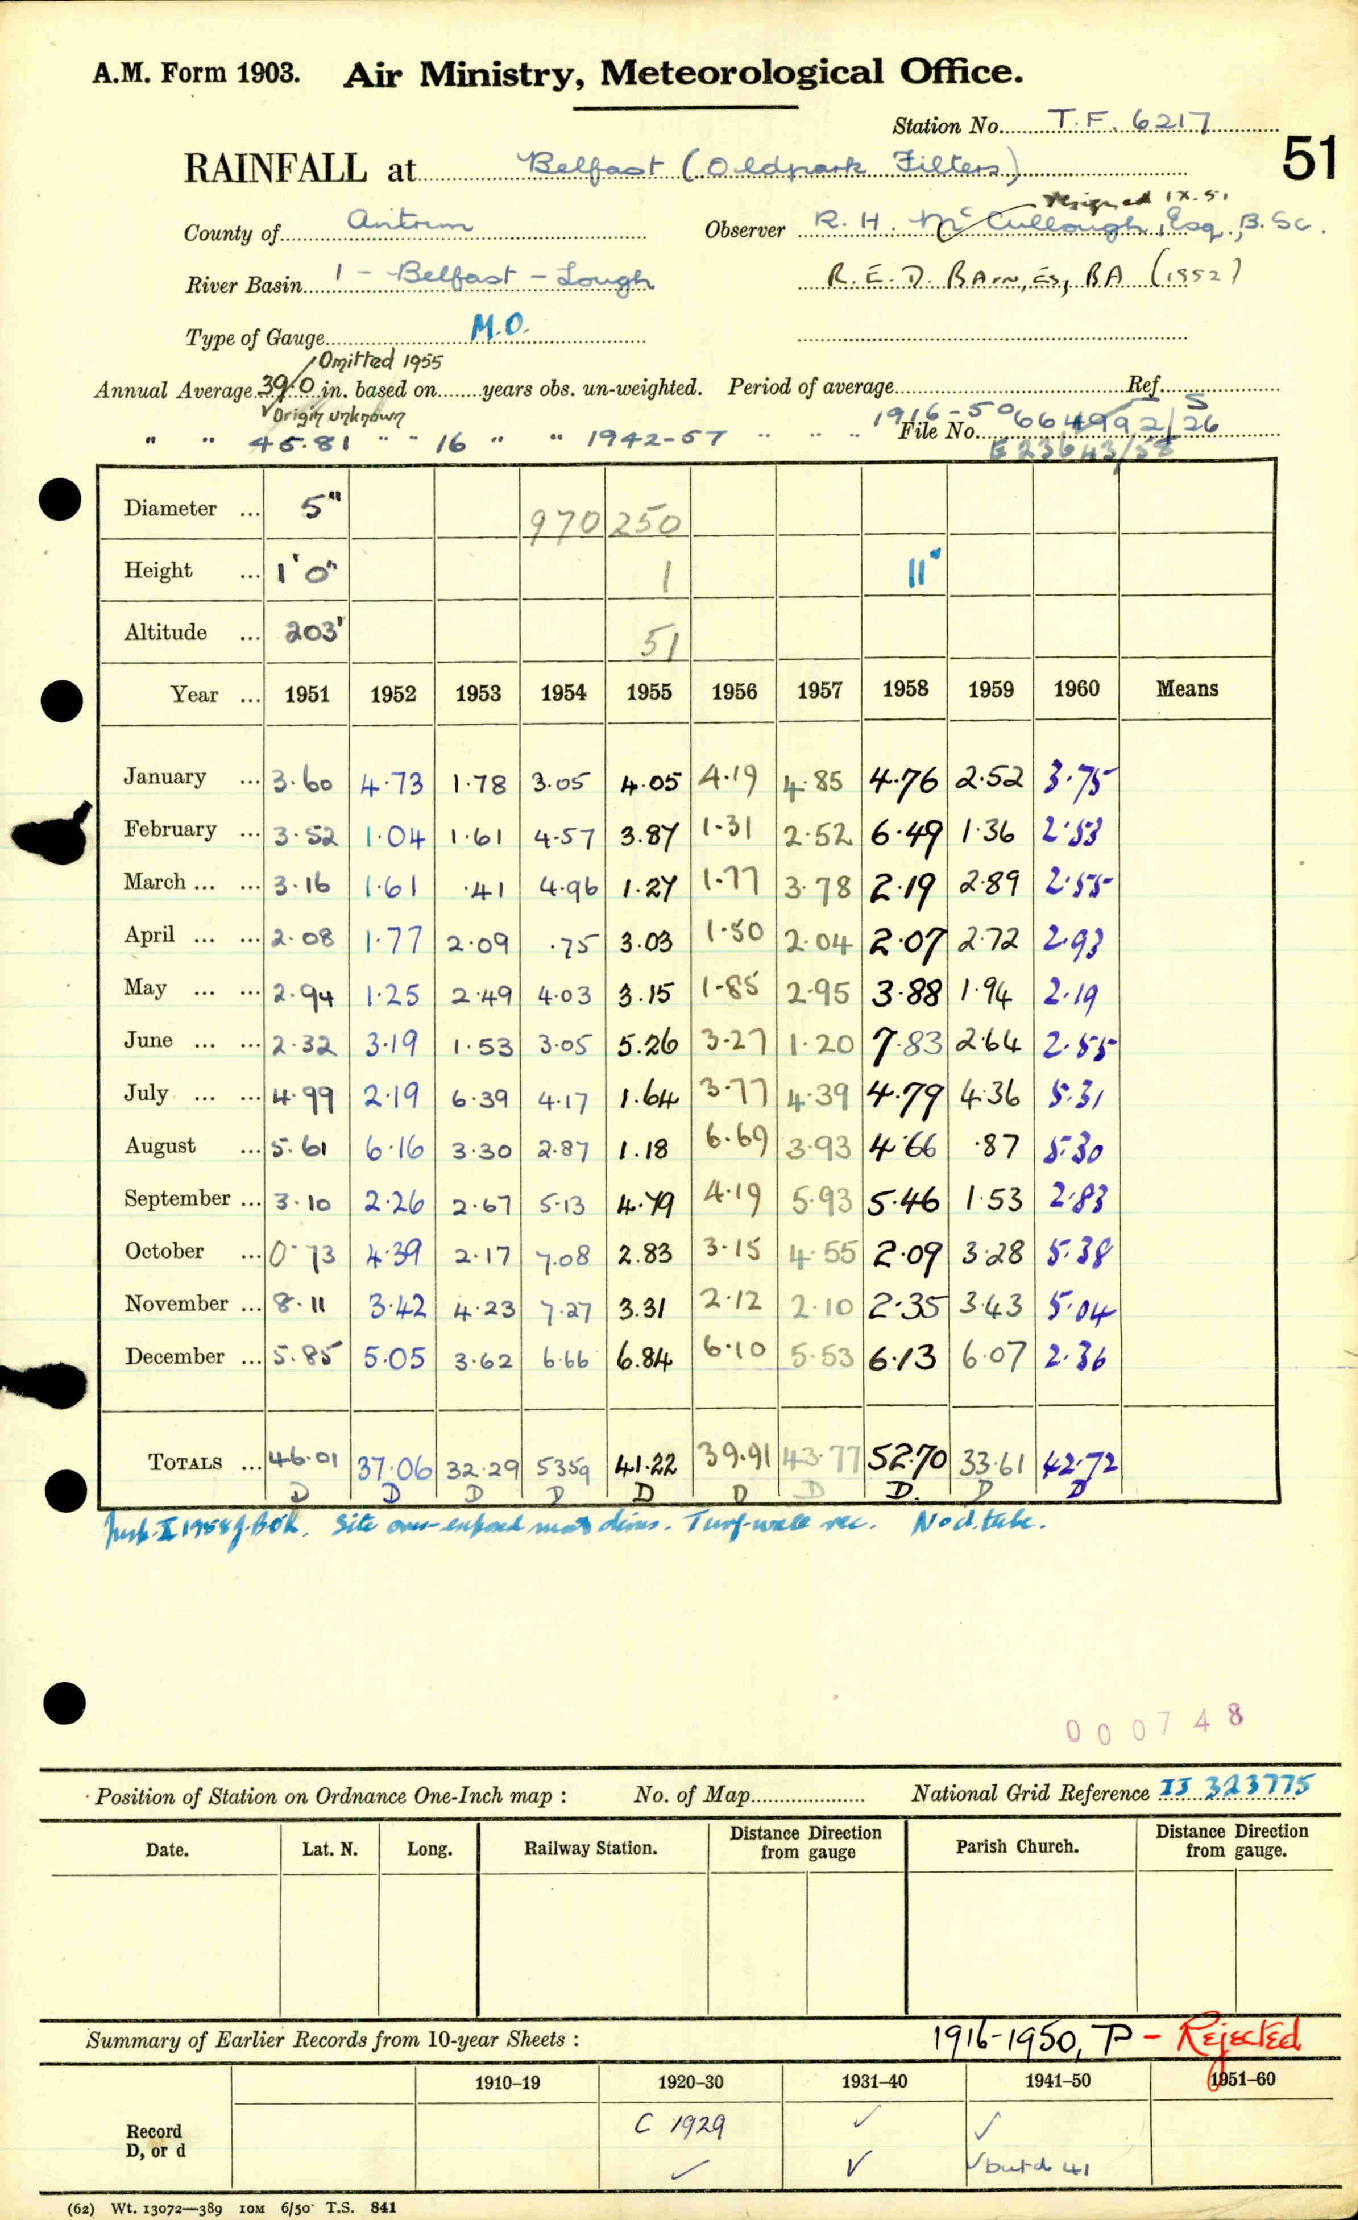 A.M. Form 1903. Air Ministry, Meteorological Office.
Station No. T.F. 6217
51
RAINFALL at Belfast (Oldpark Filters)
resigned IX.51
County of Antrim Observer R. H. McCullough, Esq., B.Sc.
River Basin 1 - Belfast - Lough R. E. D. BArn, Es, BA (1952)
Type of Gauge M.O.
Omitted 1955
Annual Average 39.0 in. based on years obs. un-weighted. Period of average Ref.
Origin unknown
1916-50 664992/26 S
" " 45.81 " " 16 " " 1942-57 " " " File No.
E 23643/58
Diameter ... 5" 970 250
Height ... 1'0" 1 11"
Altitude ... 203' 51
Year ... 1951 1952 1953 1954 1955 1956 1957 1958 1959 1960 Means
January ... 3.60 4.73 1.78 3.05 4.05 4.19 4.85 4.76 2.52 3.75
February ... 3.52 1.04 1.61 4.57 3.87 1.31 2.52 6.49 1.36 2.53
March ... ... 3.16 1.61 .41 4.96 1.27 1.77 3.78 2.19 2.89 2.55
April ... ... 2.08 1.77 2.09 .75 3.03 1.50 2.04 2.07 2.72 2.93
May ... ... 2.94 1.25 2.49 4.03 3.15 1.85 2.95 3.88 1.94 2.19
June ... ... 2.32 3.19 1.53 3.05 5.26 3.27 1.20 7.83 2.64 2.55
July ... ... 4.99 2.19 6.39 4.17 1.64 3.77 4.39 4.79 4.36 5.31
August ... 5.61 6.16 3.30 2.87 1.18 6.69 3.93 4.66 .87 5.30
September ... 3.10 2.26 2.67 5.13 4.79 4.19 5.93 5.46 1.53 2.83
October ... 0.73 4.39 2.17 7.08 2.83 3.15 4.55 2.09 3.28 5.38
November ... 8.11 3.42 4.23 7.27 3.31 2.12 2.10 2.35 3.43 5.04
December ... 5.85 5.05 3.62 6.66 6.84 6.10 5.53 6.13 6.07 2.36
TOTALS ... 46.01 37.06 32.29 53.59 41.22 39.91 43.77 52.70 33.61 42.72
D D D D D D D D. D D
Insp. I 1958 Site over-exposed most dirns. Turf-wall rec. No d. tube.
0 0 0 7 4 8
Position of Station on Ordnance One-Inch map : No. of Map National Grid Reference IJ 323775
Date. Lat. N. Long. Railway Station. Distance from gauge Direction Parish Church. Distance Direction from gauge.
Summary of Earlier Records from 10-year Sheets : 1916-1950, P - Rejected
1910–19 1920–30 1931–40 1941–50 1951–60
Record D, or d C 1929 ✓ ✓
✓ ✓ ✓ but d 41
(62) Wt. 13072—389 10M 6/50 T.S. 841